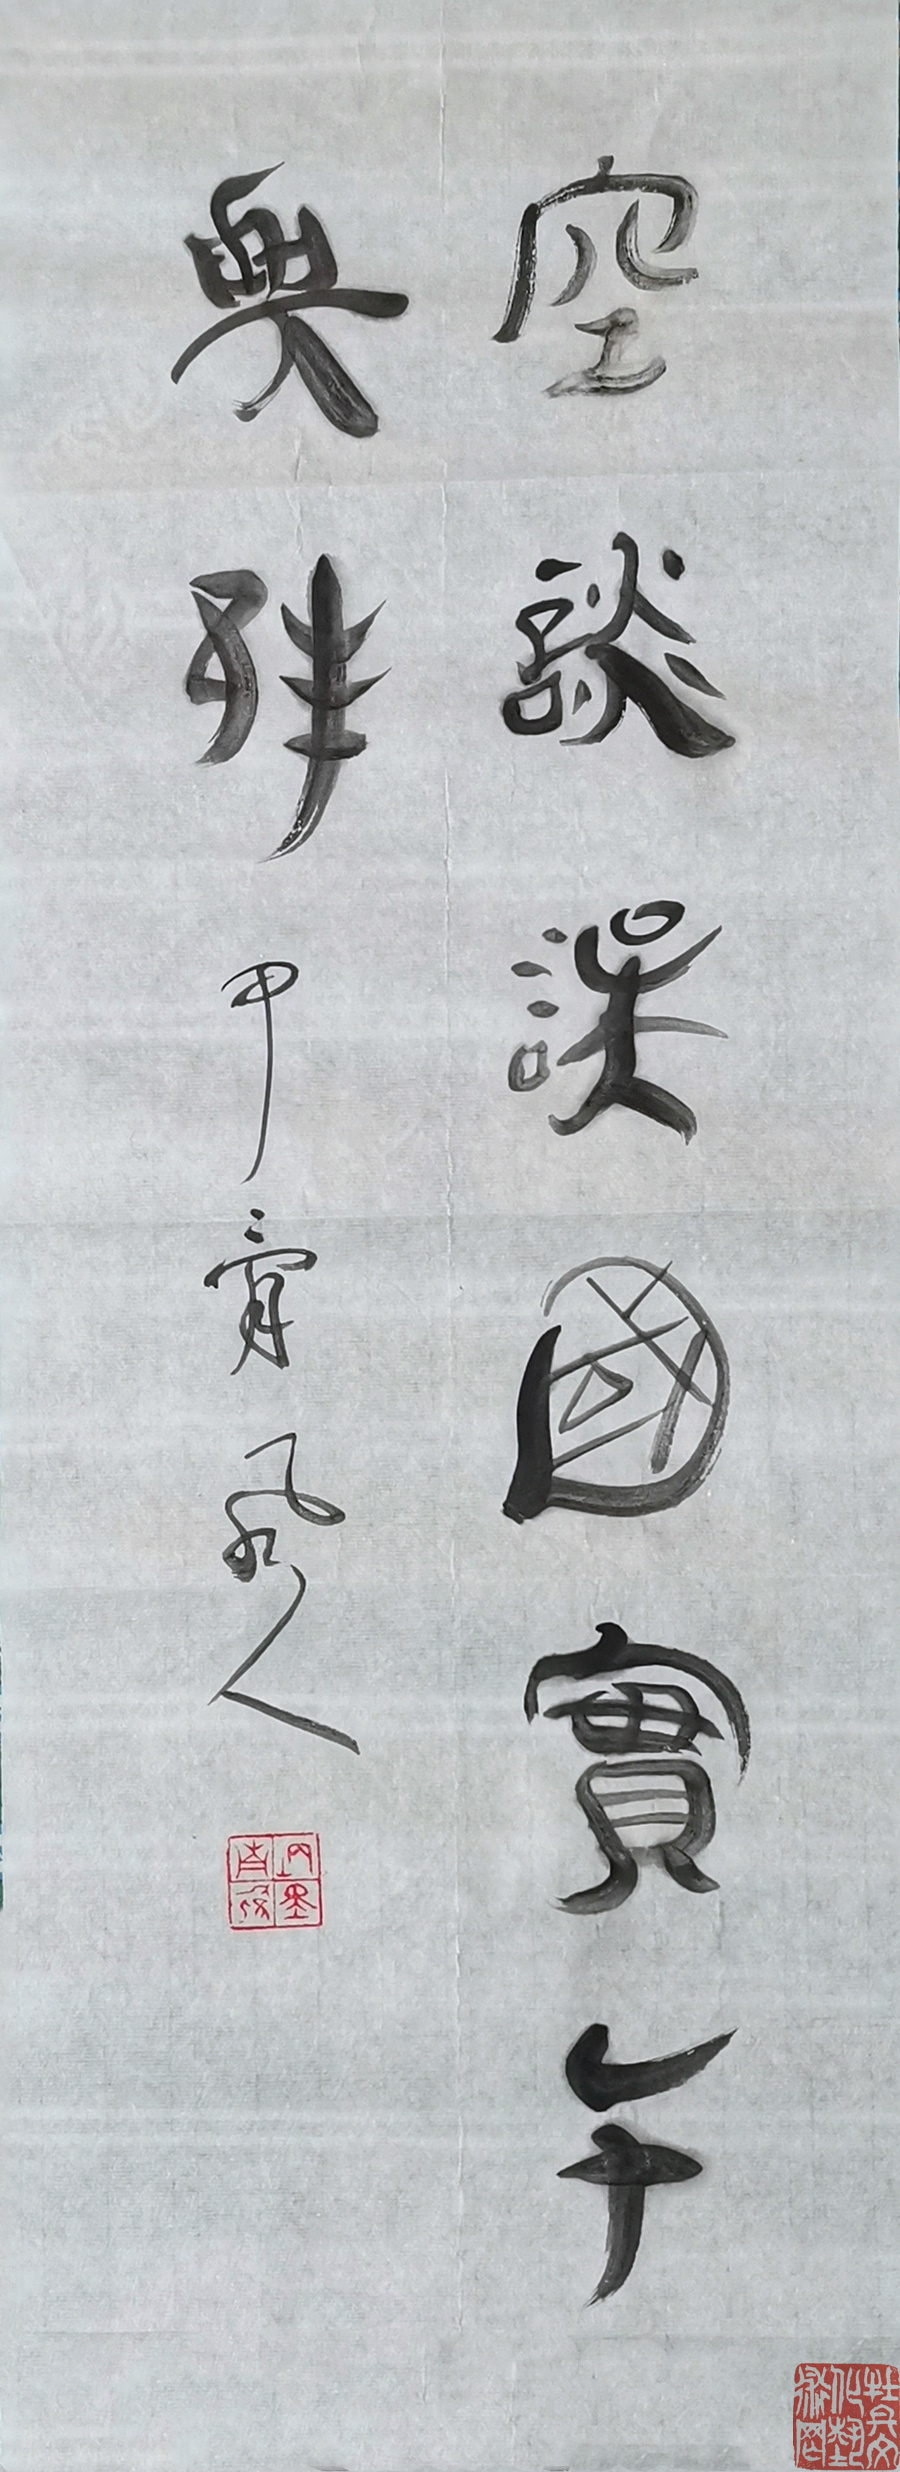 空談誤國實干
興邦 甲骨風人